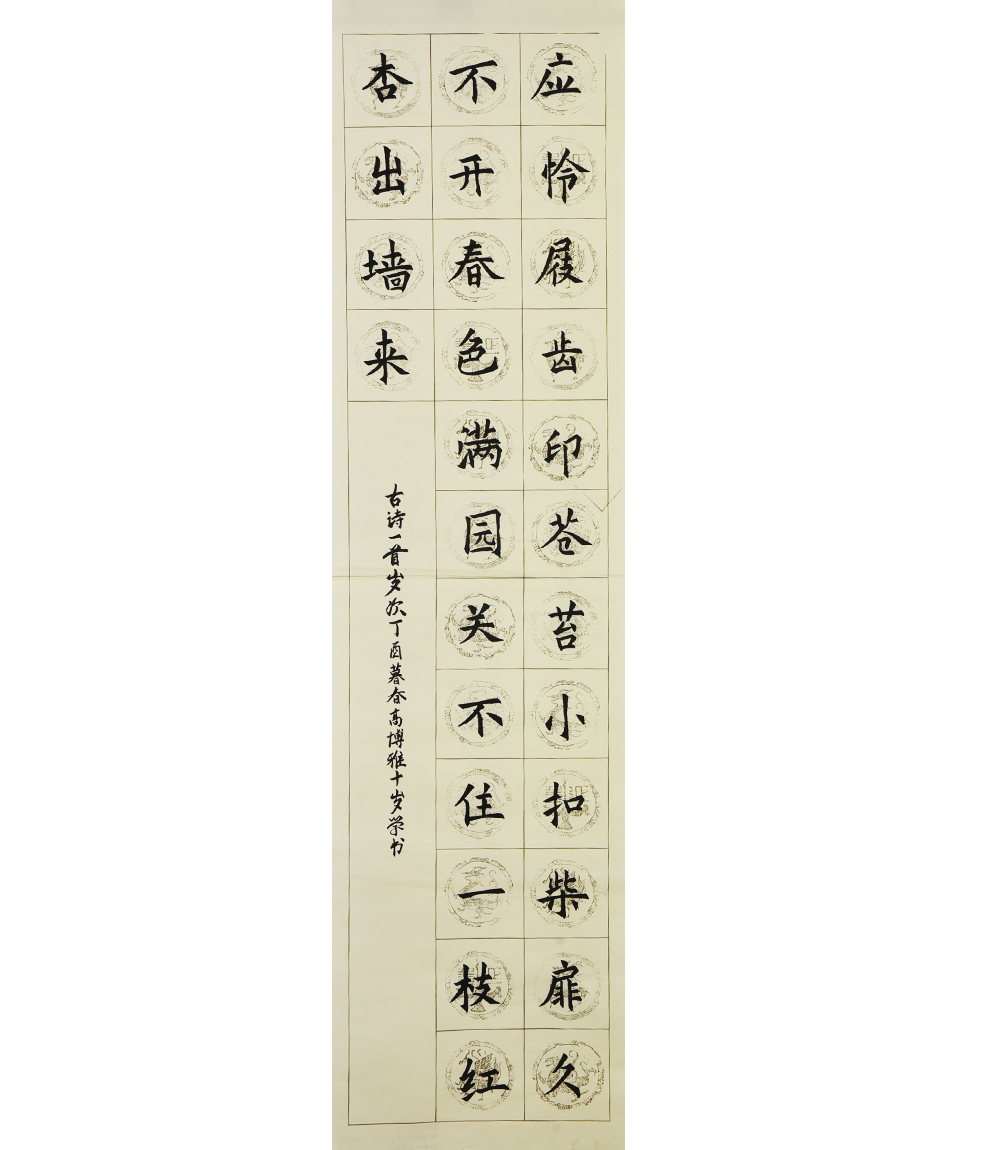 应怜屐齿印苍苔小扣柴扉久
不开春色满园关不住一枝红
杏出墙来
古诗一首岁次丁酉暮春高博雅十岁学书